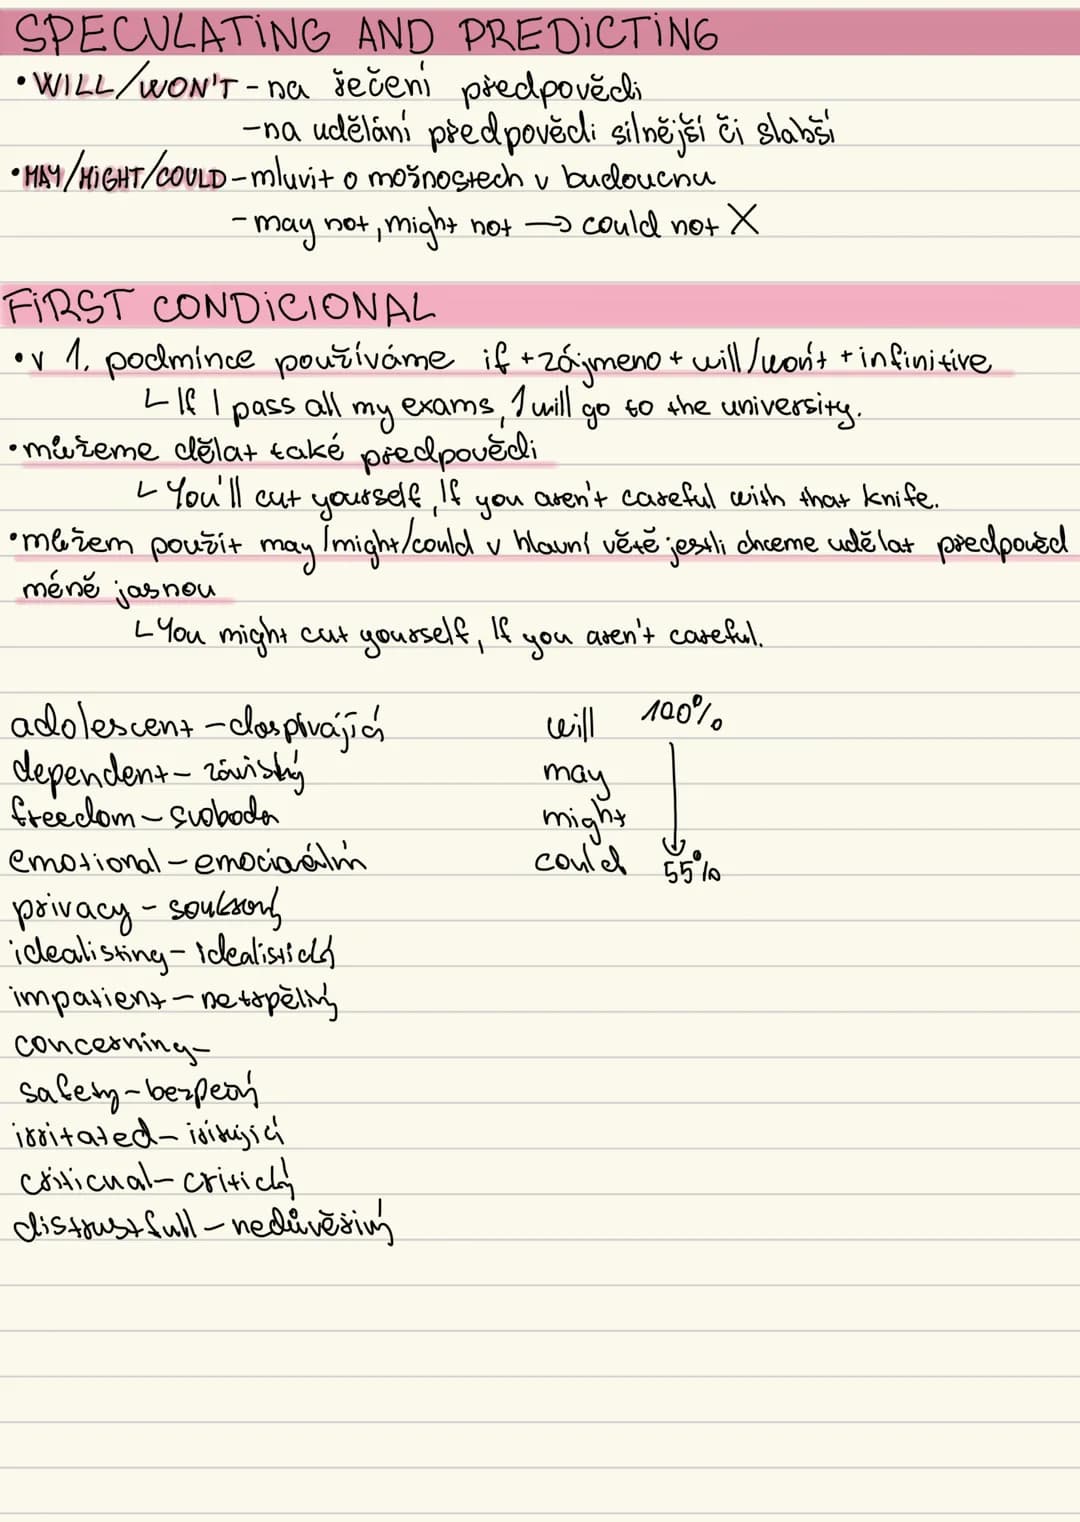 SPECULATING AND PREDICTING
• WILL/WON'T - na řečení předpovědi
- na udělání předpovědi silnější či slabší
• MAY/MIGHT/COULD - mluvit o možnostech v budoucnu
- may not, might not → could not X
FIRST CONDICIONAL
• v 1. podmínce používáme if + zájmeno + will/won't + infinitive
If I pass all my exams, I will go to the university.
• můžeme dělat také předpovědi
You'll cut yourself, If you aren't careful with that knife.
• můžem použít may/might/could v hlavní větě jestli chceme udělat předpověd
méně jasnou
You might cut yourself, If you aren't careful.
adolescent - dospívající
dependent - závislý
freedom - svoboda
emotional - emocionální
privacy - soukromí
idealisting - idealistický
impatient - netrpělivý
concerning -
safety - bezpečný
irritated - iritující
criticual - critický
distrustfull - nedůvěřivý
will 100%
may
might
could 55%